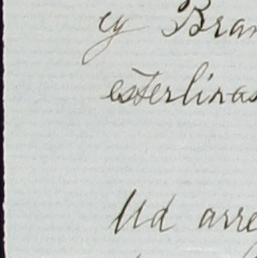 cy Bran
esterlinas
Ud arre